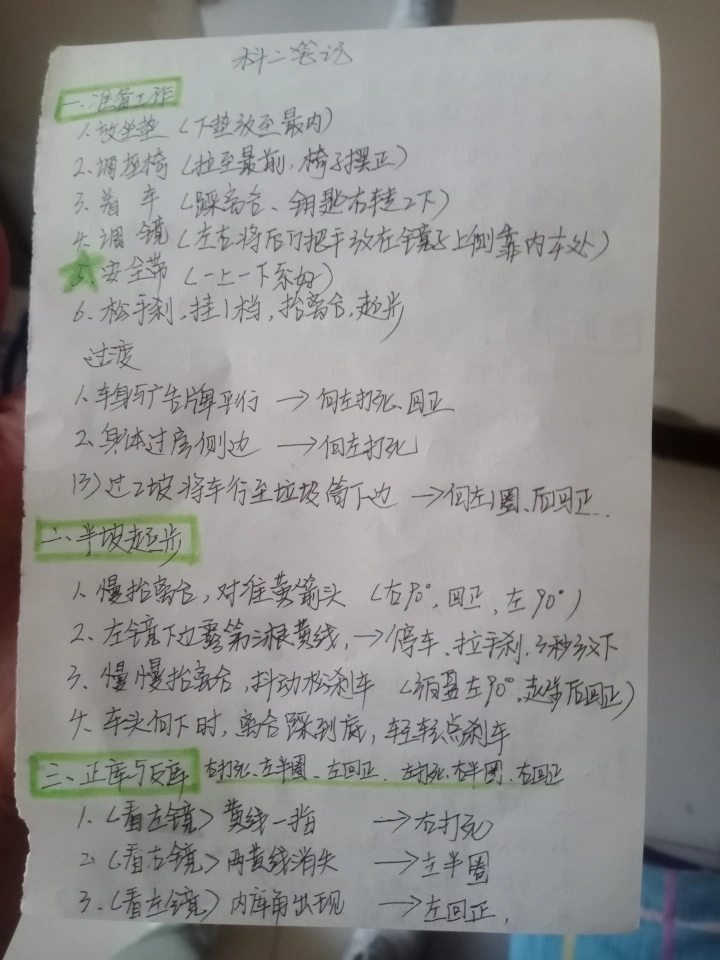 科二笔记
一、准备工作
1、放坐垫（下垫放至最内）
2、调座椅（拉至最前，椅子摆正）
3、着车（踩离合、钥匙右转2下）
4、调镜（左右将后门把手放在镜子上侧靠内车处）
5、安全带（一上一下系好）
6、松手刹，挂1档，抬离合，起步
过渡
1、车身与广告牌平行 → 向左打死、回正
2、身体过房侧边 → 向左打死
13）过2坡将车行至垃圾筒下边 → 向左1圈、后回正.
二、半坡起步
1、慢抬离合，对准黄箭头（右90°，回正、左90°）
2、左镜下边第三根黄线，→停车、拉手刹，3秒
3、慢慢抬离合，抖动松刹车（左90°，起步后回正）
4、车头向下时，离合踩到底，轻轻点刹车
三、正库与反库 右打死、左半圈、左回正. 左打死、右半圈、右回正
1、（看左镜）黄线一指 → 右打死
2、（看右镜）两黄线消失 → 左半圈
3、（看左镜）内库角出现 → 左回正.